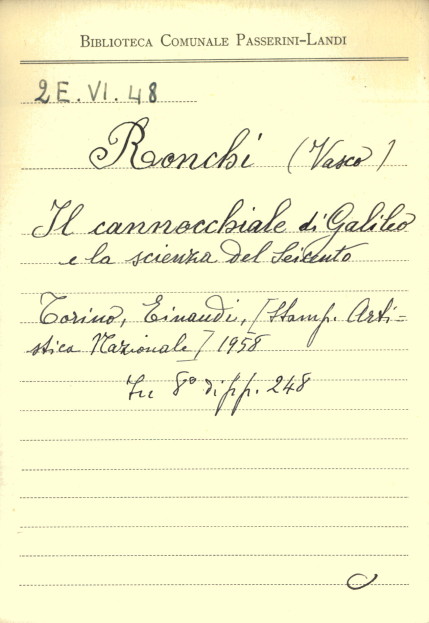 BIBLIOTECA COMUNALE PASSERINI-LANDI
2E.VI.48
Ronchi (Vasco)
Il cannocchiale di Galileo
e la scienza del Seicento
Torino, Einaudi, [Stamp. Arti=
stica Nazionale] 1958
In 8° di pp. 248